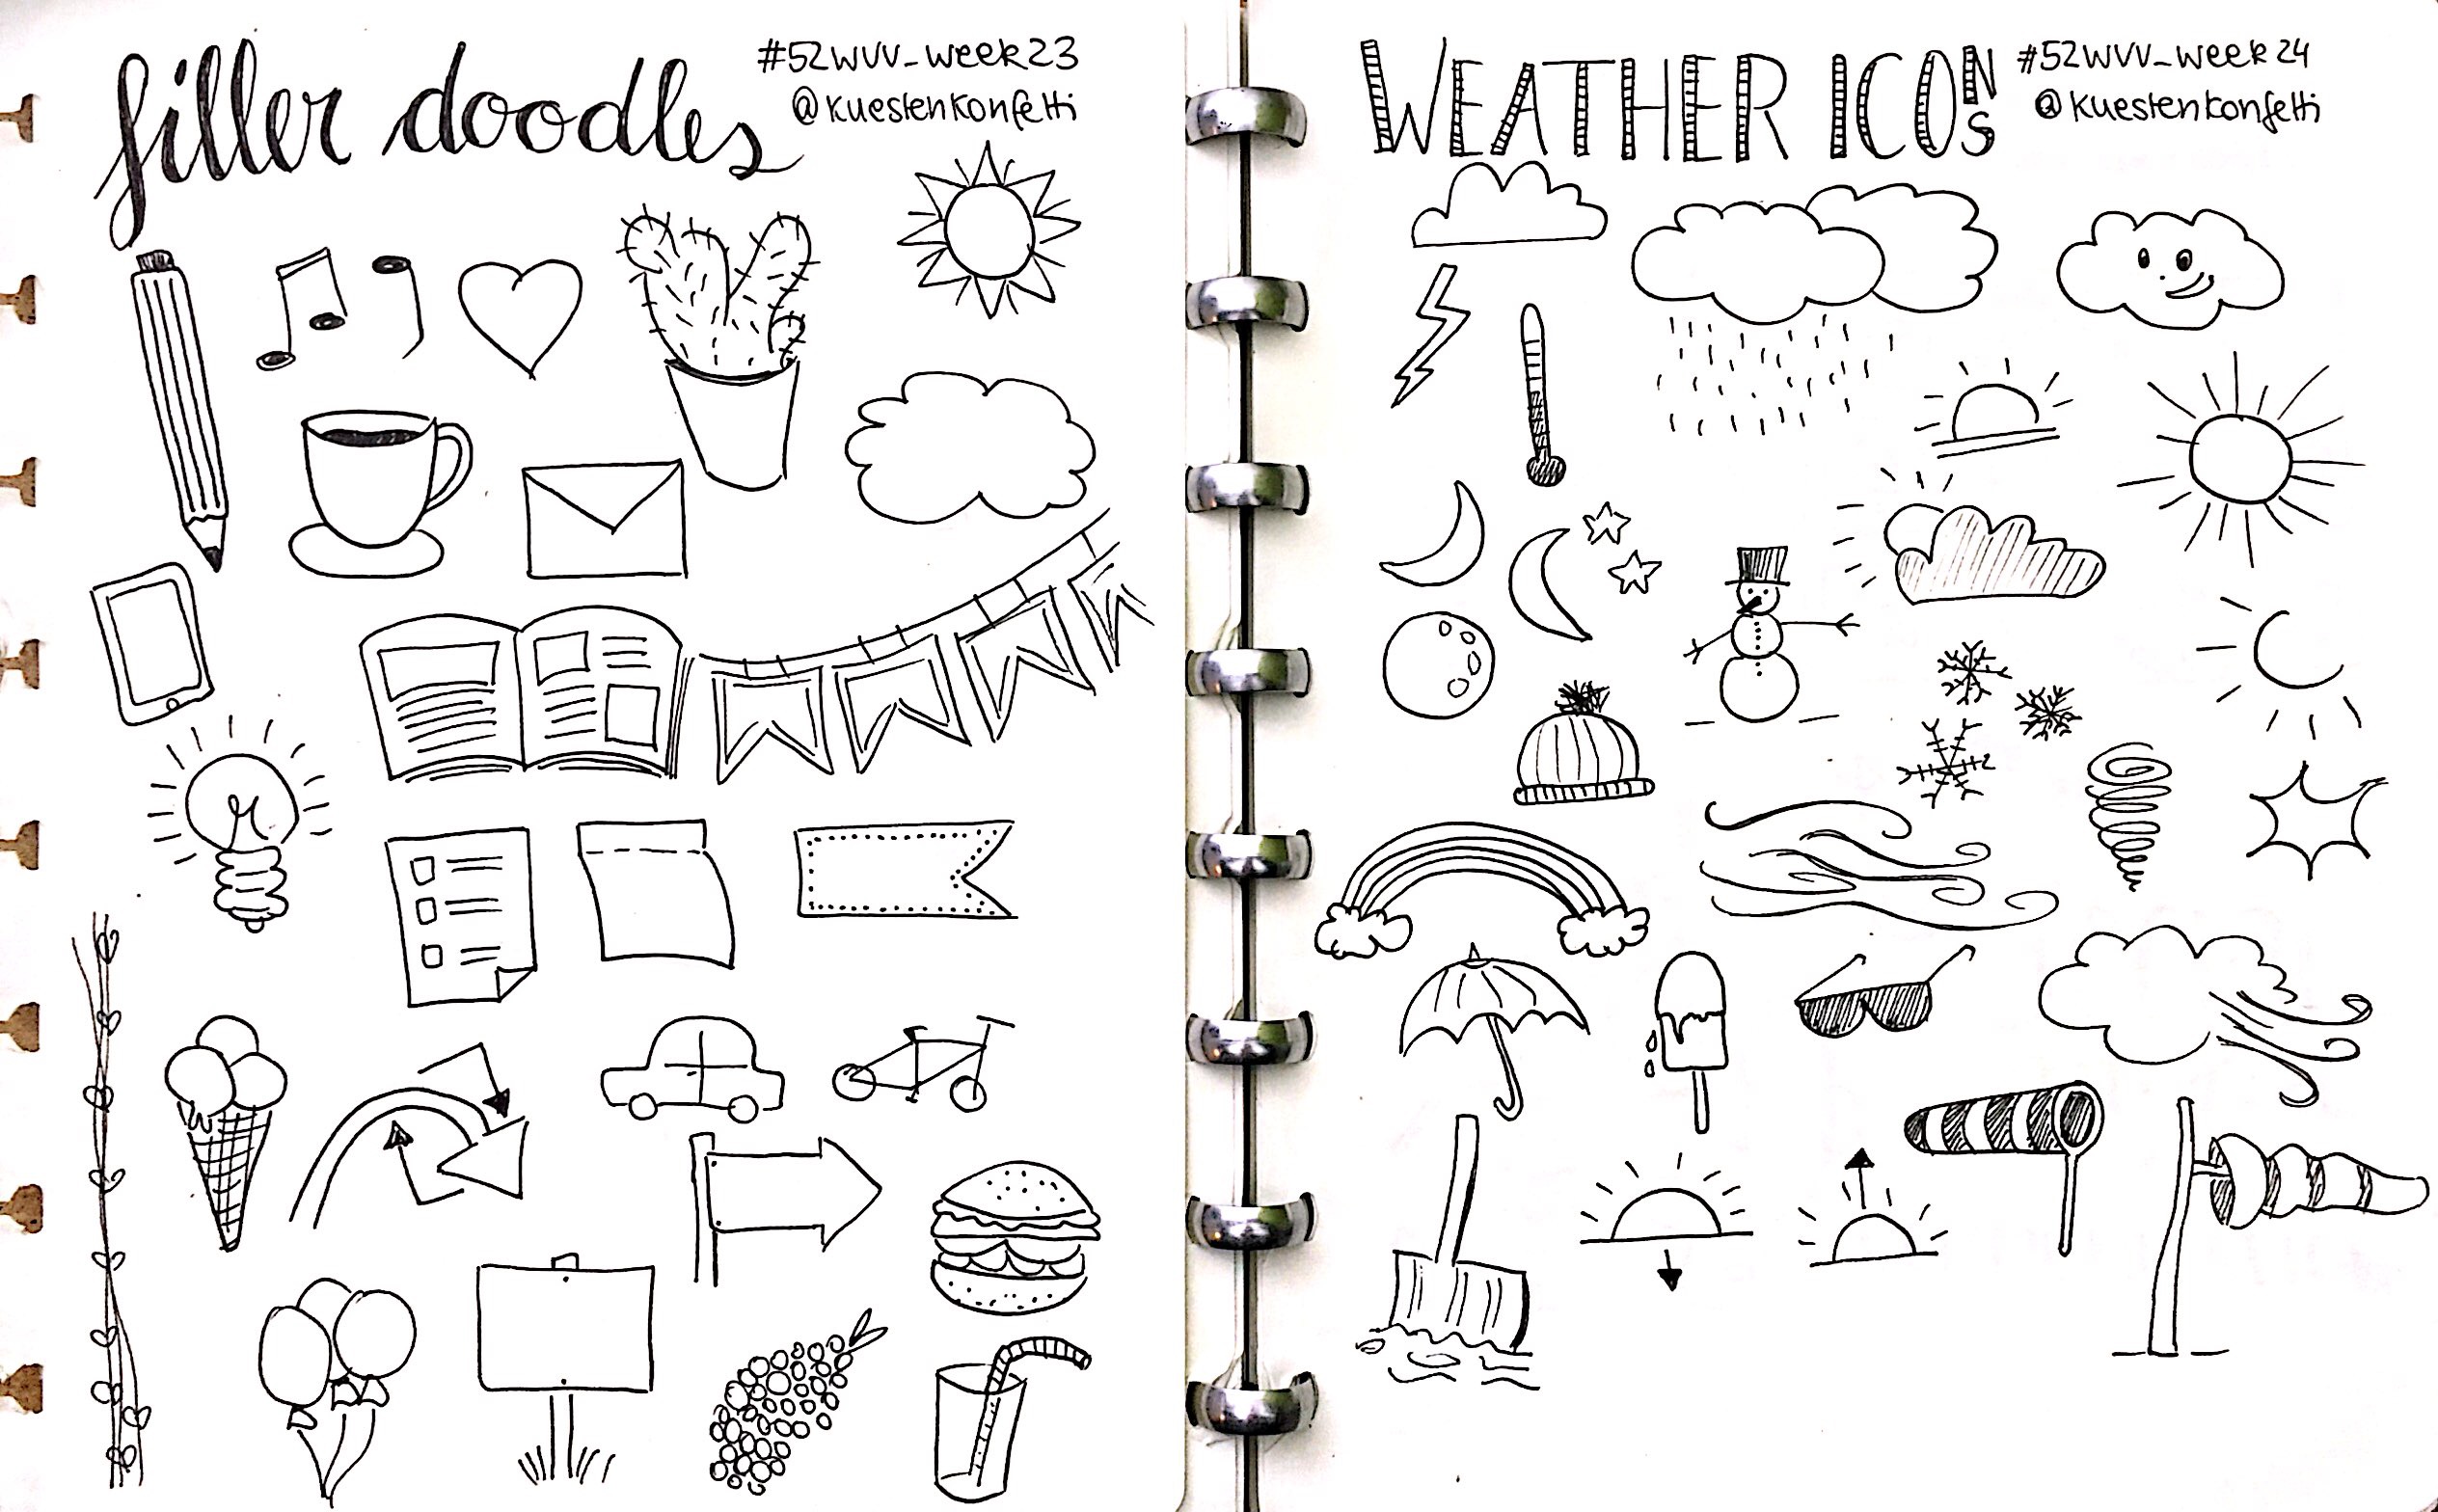 filler doodles
#52WVV_week23
@kuestenkonfetti
WEATHER ICONS
#52WVV_week24
@kuestenkonfetti